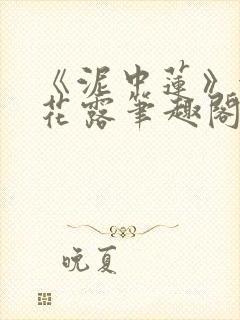 《泥中莲》
花露笔趣阁
晚夏